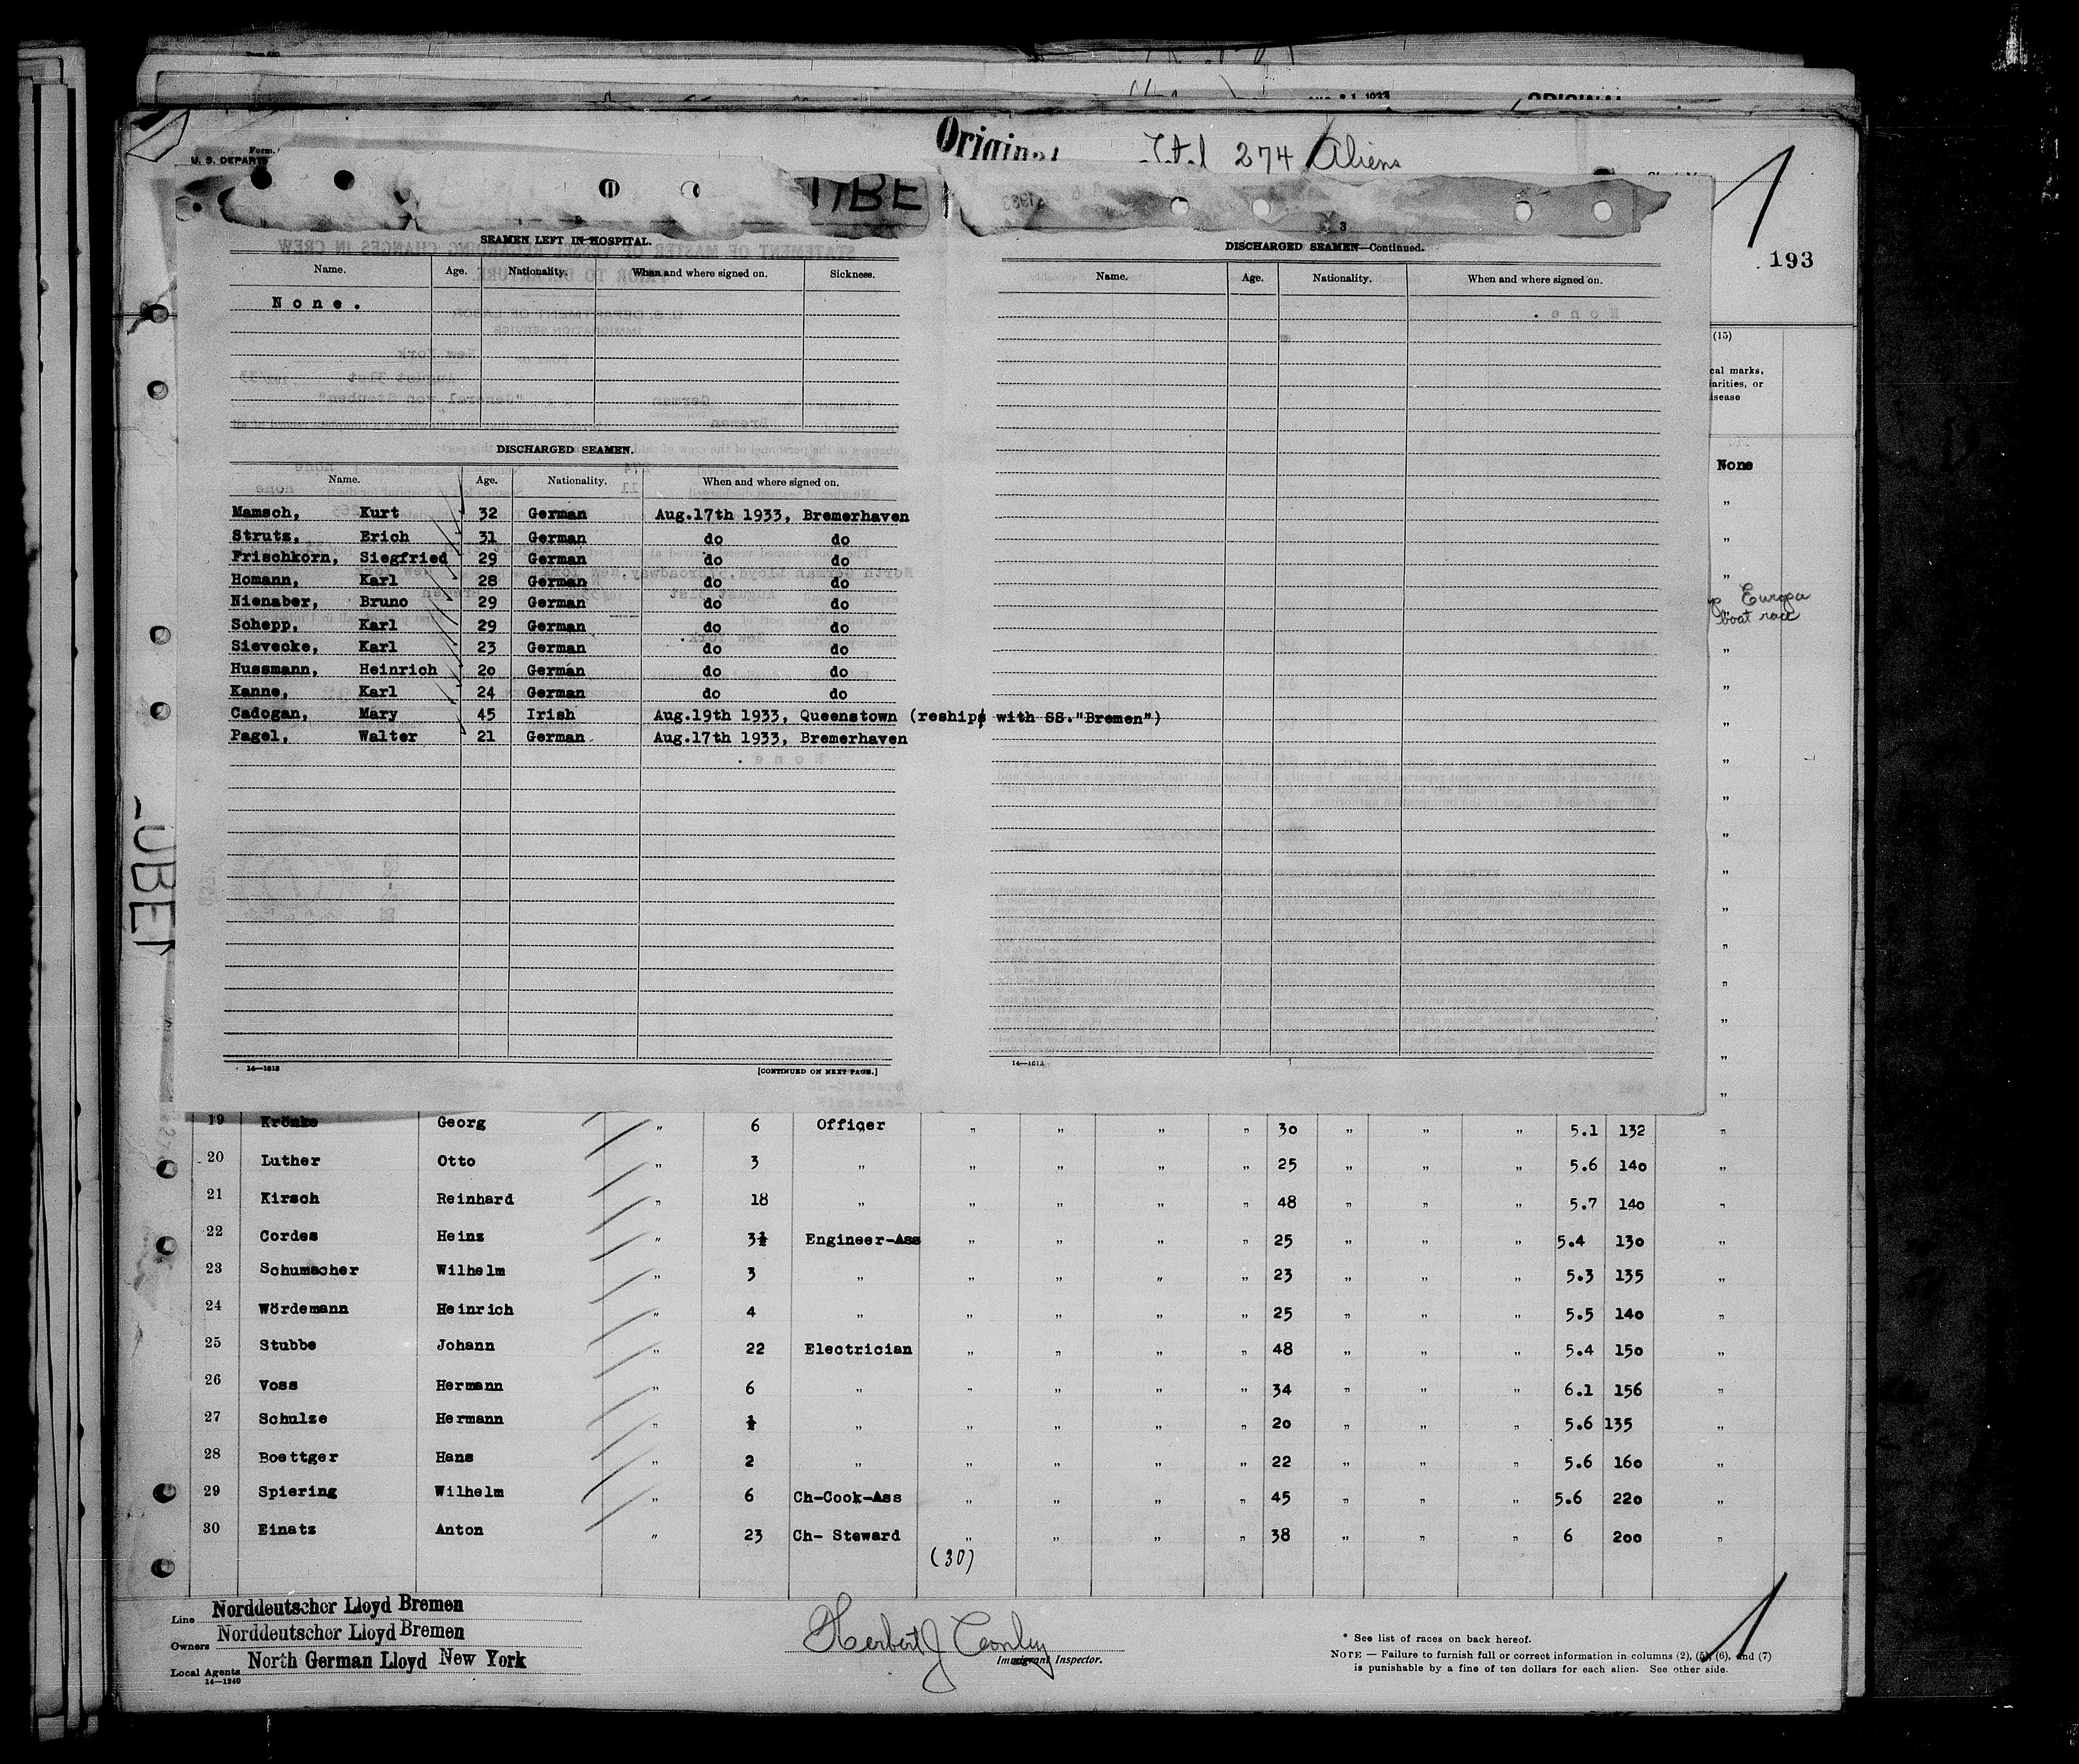 Original Total 274 Aliens
Form.
U. S. DEPART
193
2
SEAMEN LEFT IN HOSPITAL.
Name. Age. Nationality. When and where signed on. Sickness.
None.
DISCHARGED SEAMEN.
Name. Age. Nationality. When and where signed on.
Mamsch, Kurt 32 German Aug.17th 1933, Bremerhaven
Strutz, Erich 31 German do do
Frischkorn, Siegfried 29 German do do
Homann, Karl 28 German do do
Nienaber, Bruno 29 German do do
Schepp, Karl 29 German do do
Sievecke, Karl 23 German do do
Hussmann, Heinrich 20 German do do
Kanne, Karl 24 German do do
Cadogan, Mary 45 Irish Aug.19th 1933, Queenstown (reships with SS."Bremen")
Pagel, Walter 21 German Aug.17th 1933, Bremerhaven
14—1613 [CONTINUED ON NEXT PAGE.]
3
DISCHARGED SEAMEN—Continued.
Name. Age. Nationality. When and where signed on.
14—1613
(15)
cal marks,
iarities, or
isease
None
"
"
"
Europa
boat race
"
"
"
"
"
"
"
"
"
"
"
"
"
19 Krönke Georg " 6 Officer " " " " 30 " " " 5.1 132 "
20 Luther Otto " 3 " " " " " 25 " " " 5.6 140 "
21 Kirsch Reinhard " 18 " " " " " 48 " " " 5.7 140 "
22 Cordes Heinz " 3½ Engineer-Ass " " " " 25 " " " 5.4 130 "
23 Schumacher Wilhelm " 3 " " " " " 23 " " " 5.3 135 "
24 Wördemann Heinrich " 4 " " " " " 25 " " " 5.5 140 "
25 Stubbe Johann " 22 Electrician " " " " 48 " " " 5.4 150 "
26 Voss Hermann " 6 " " " " " 34 " " " 6.1 156 "
27 Schulze Hermann " ½ " " " " " 20 " " " 5.6 135 "
28 Boettger Hans " 2 " " " " " 22 " " " 5.6 160 "
29 Spiering Wilhelm " 6 Ch-Cook-Ass " " " " 45 " " " 5.6 220 "
30 Einatz Anton " 23 Ch- Steward " " " " 38 " " " 6 200 "
(30)
Line Norddeutscher Lloyd Bremen
Owners Norddeutscher Lloyd Bremen
Local Agents North German Lloyd New York
14—1240
Herbert J
Immigrant Inspector.
* See list of races on back hereof.
NOTE — Failure to furnish full or correct information in columns (2), (5), (6), and (7)
is punishable by a fine of ten dollars for each alien. See other side.